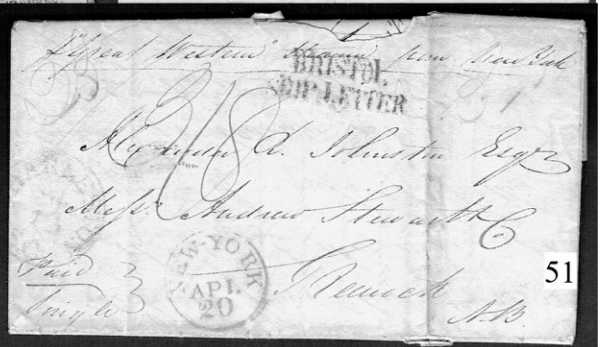 "Great Western" Steamer from New York
BRISTOL
SHIP LETTER
Alexander L. Johnston Esqr
Messrs Andrew Stewart & Co
Greenock
N.B.
Paid
Single
NEW-YORK
APL
20
51